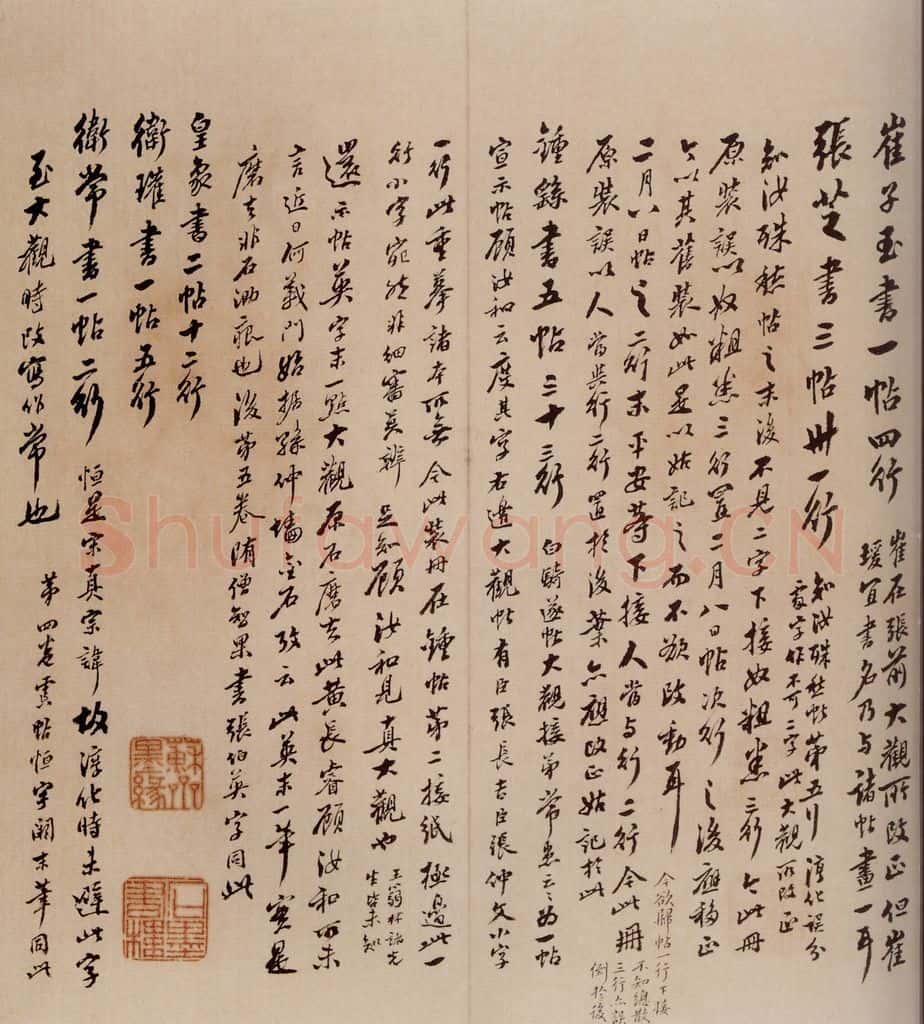 崔子玉書一帖四行
崔在張前大觀所改正但崔
瑗宜書名乃与諸帖畫一耳
張芝書三帖卅一行
知汝殊愁帖第五行淳化誤分
處字作不可二字此大觀所改正
知汝殊愁帖之末後不見二字下接奴粗悉三行今此冊
原裝誤以奴粗悉三行置二月八日帖次行之後應移正
今以其舊裝如此是以姑記之而不欲改動耳
二月八日帖之二行末平安等下接人當与行二行今此冊
今欲歸帖一行下接
不知總散
三行亦誤
倒於後
原裝誤以人當與行二行置於後葉亦應改正姑記於此
鍾繇書五帖三十三行
白騎遂帖大觀接第常患云云為一帖
宣示帖顧汝和云度其字右邊大觀帖有臣張長吉臣張仲文小字
一行此重摹諸本所無今此裝冊在鍾帖第二接紙極邊此一
行小字宛然非細審莫辨
足知顧汝和見真大觀也
王蒻林諸先
生皆未知
還示帖英字末一點大觀原石磨去此黃長睿顧汝和所未
言近日何義門始據孫仲墻金石攷云此英末一筆實是
磨去非石泐痕也後第五卷隋僧智果書張伯英字同此
皇象書二帖十二行
衛瓘書一帖五行
衛常書一帖二行
恒是宋真宗諱故淳化時未避此字
至大觀時改寫作常也
第四卷虞帖恒字闕末筆同此
蘇齋
墨緣
書樓
Shufawang.CN